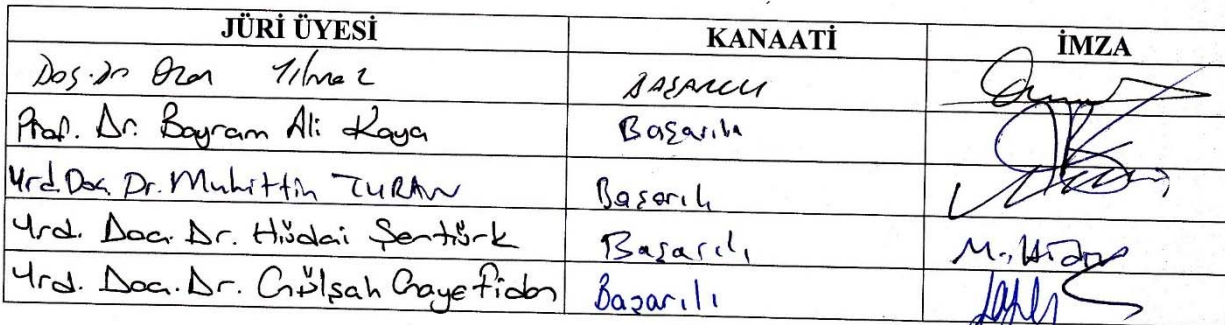 JÜRİ ÜYESİ KANAATİ İMZA
Doç. Dr Ozan Yılmaz BAŞARILI
Prof. Dr. Bayram Ali Kaya Başarılı
Yrd. Doç. Dr. Muhittin TURAN Başarılı
Yrd. Doç. Dr. Hüdai Şentürk Başarılı
Yrd. Doç. Dr. Gülşah Gaye Fidan Başarılı